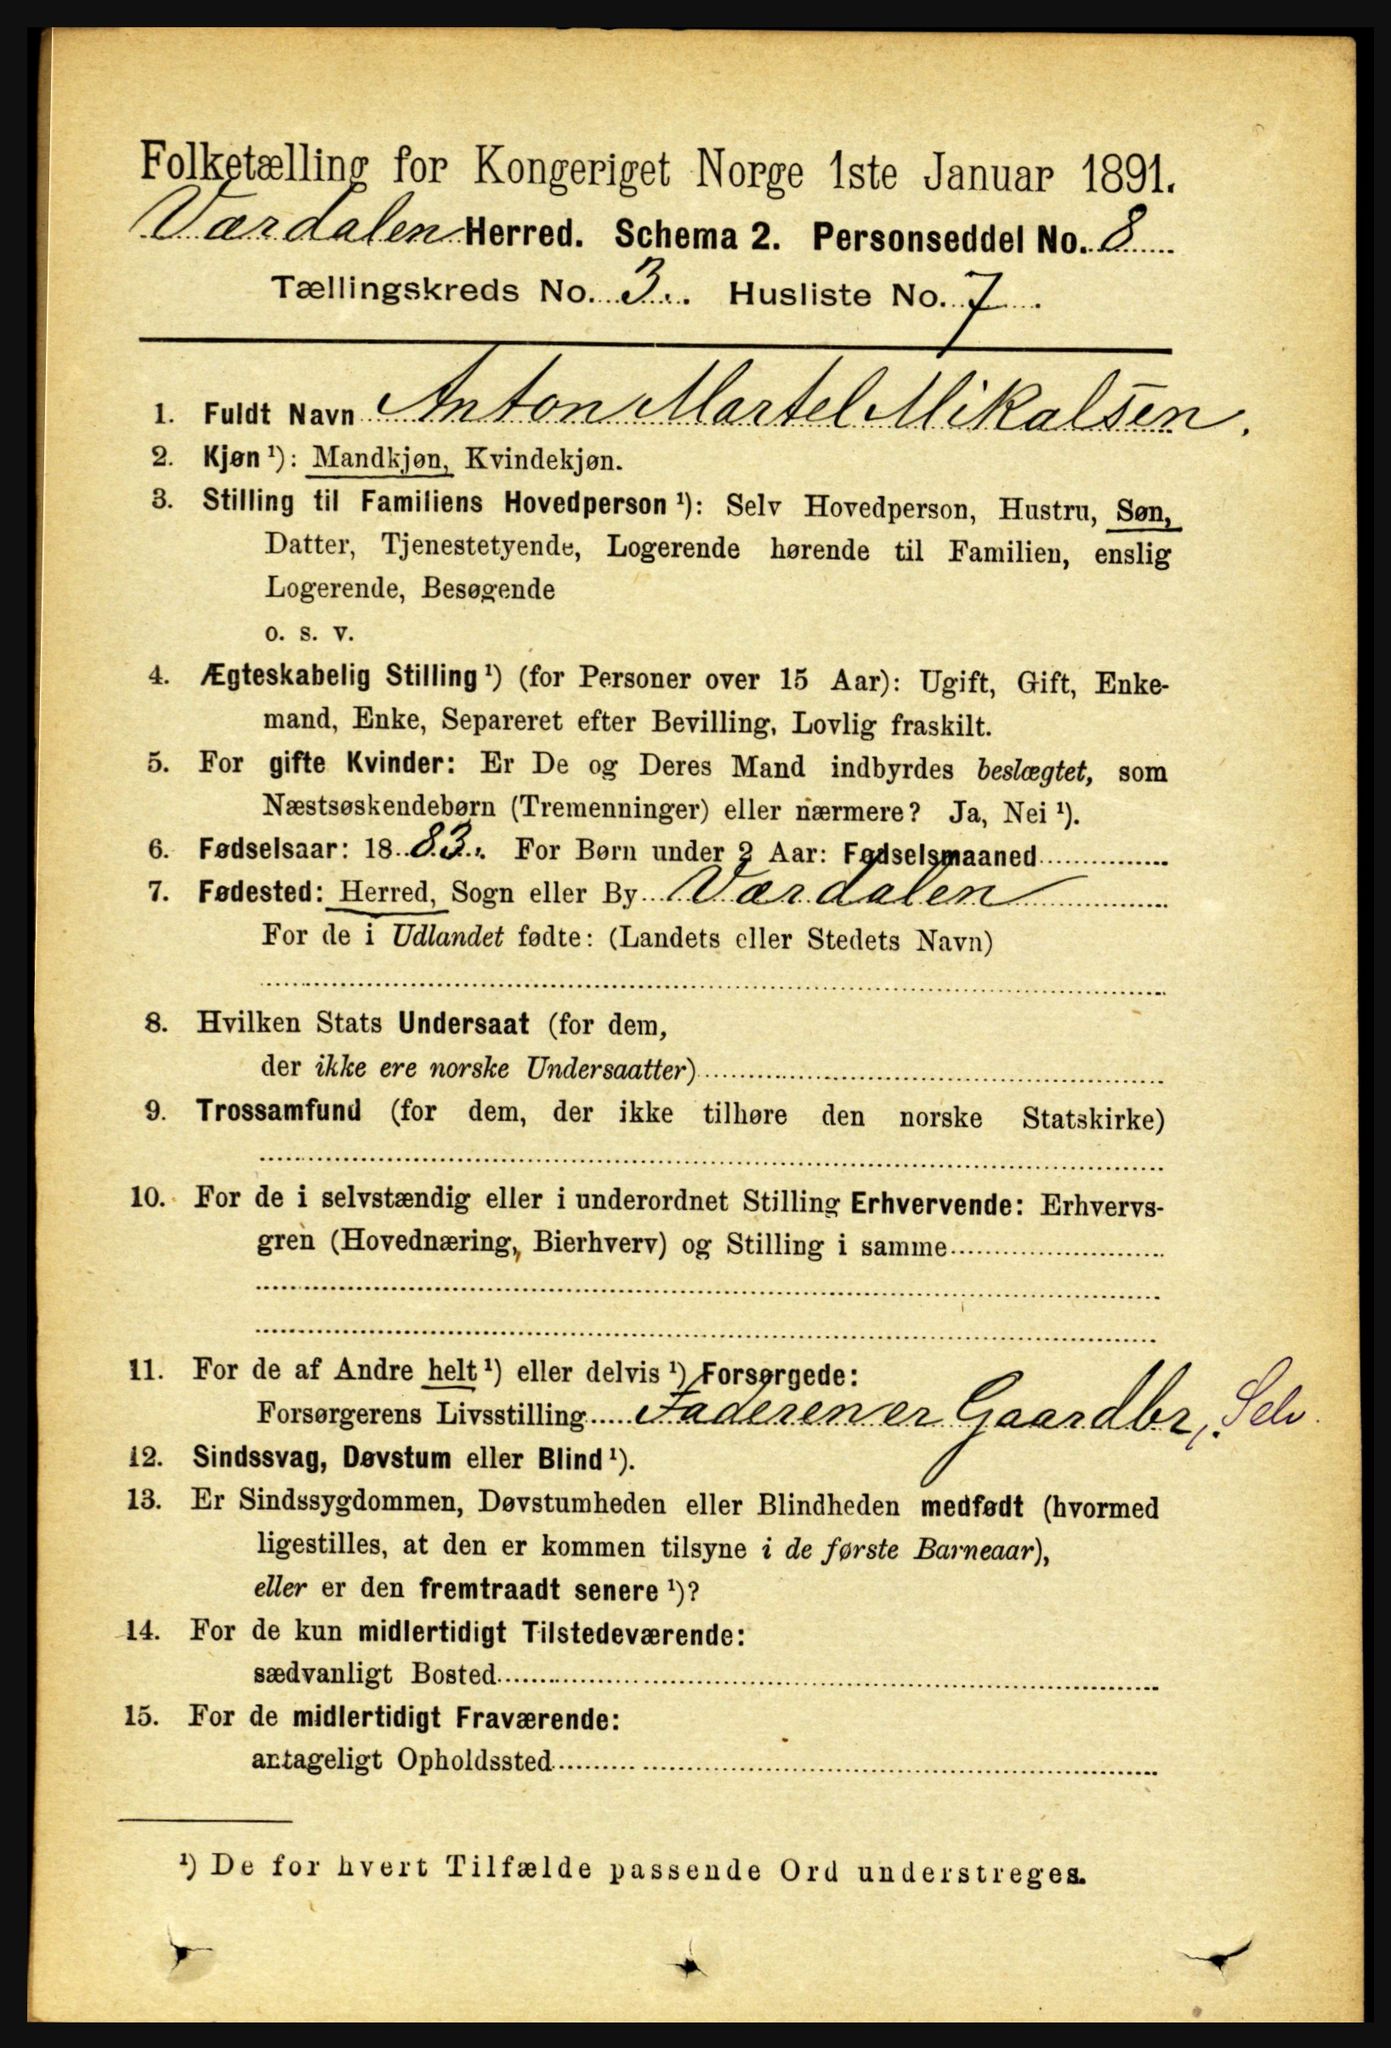 Folketælling for Kongeriget Norge 1ste Januar 1891.
Værdalen Herred. Schema 2. Personseddel No. 8
Tællingskreds No. 3. Husliste No. 7
1. Fuldt Navn Anton Martel Mikalsen.
2. Kjøn ¹): Mandkjøn, Kvindekjøn.
3. Stilling til Familiens Hovedperson ¹): Selv Hovedperson, Hustru, Søn,
Datter, Tjenestetyende, Logerende hørende til Familien, enslig
Logerende, Besøgende
o. s. v.
4. Ægteskabelig Stilling ¹) (for Personer over 15 Aar): Ugift, Gift, Enke-
mand, Enke, Separeret efter Bevilling, Lovlig fraskilt.
5. For gifte Kvinder: Er De og Deres Mand indbyrdes beslægtet, som
Næstsøskendebørn (Tremenninger) eller nærmere? Ja, Nei ¹).
6. Fødselsaar: 1883. For Børn under 2 Aar: Fødselsmaaned
7. Fødested: Herred, Sogn eller By Værdalen
For de i Udlandet fødte: (Landets eller Stedets Navn)
8. Hvilken Stats Undersaat (for dem,
der ikke ere norske Undersaatter)
9. Trossamfund (for dem, der ikke tilhøre den norske Statskirke)
10. For de i selvstændig eller i underordnet Stilling Erhvervende: Erhvervs-
gren (Hovednæring, Bierhverv) og Stilling i samme
11. For de af Andre helt ¹) eller delvis ¹) Forsørgede:
Forsørgerens Livsstilling Faderen er Gaardbr, Selv.
12. Sindssvag, Døvstum eller Blind ¹).
13. Er Sindssygdommen, Døvstumheden eller Blindheden medfødt (hvormed
ligestilles, at den er kommen tilsyne i de første Barneaar),
eller er den fremtraadt senere ¹)?
14. For de kun midlertidigt Tilstedeværende:
sædvanligt Bosted
15. For de midlertidigt Fraværende:
antageligt Opholdssted
¹) De for hvert Tilfælde passende Ord understreges.